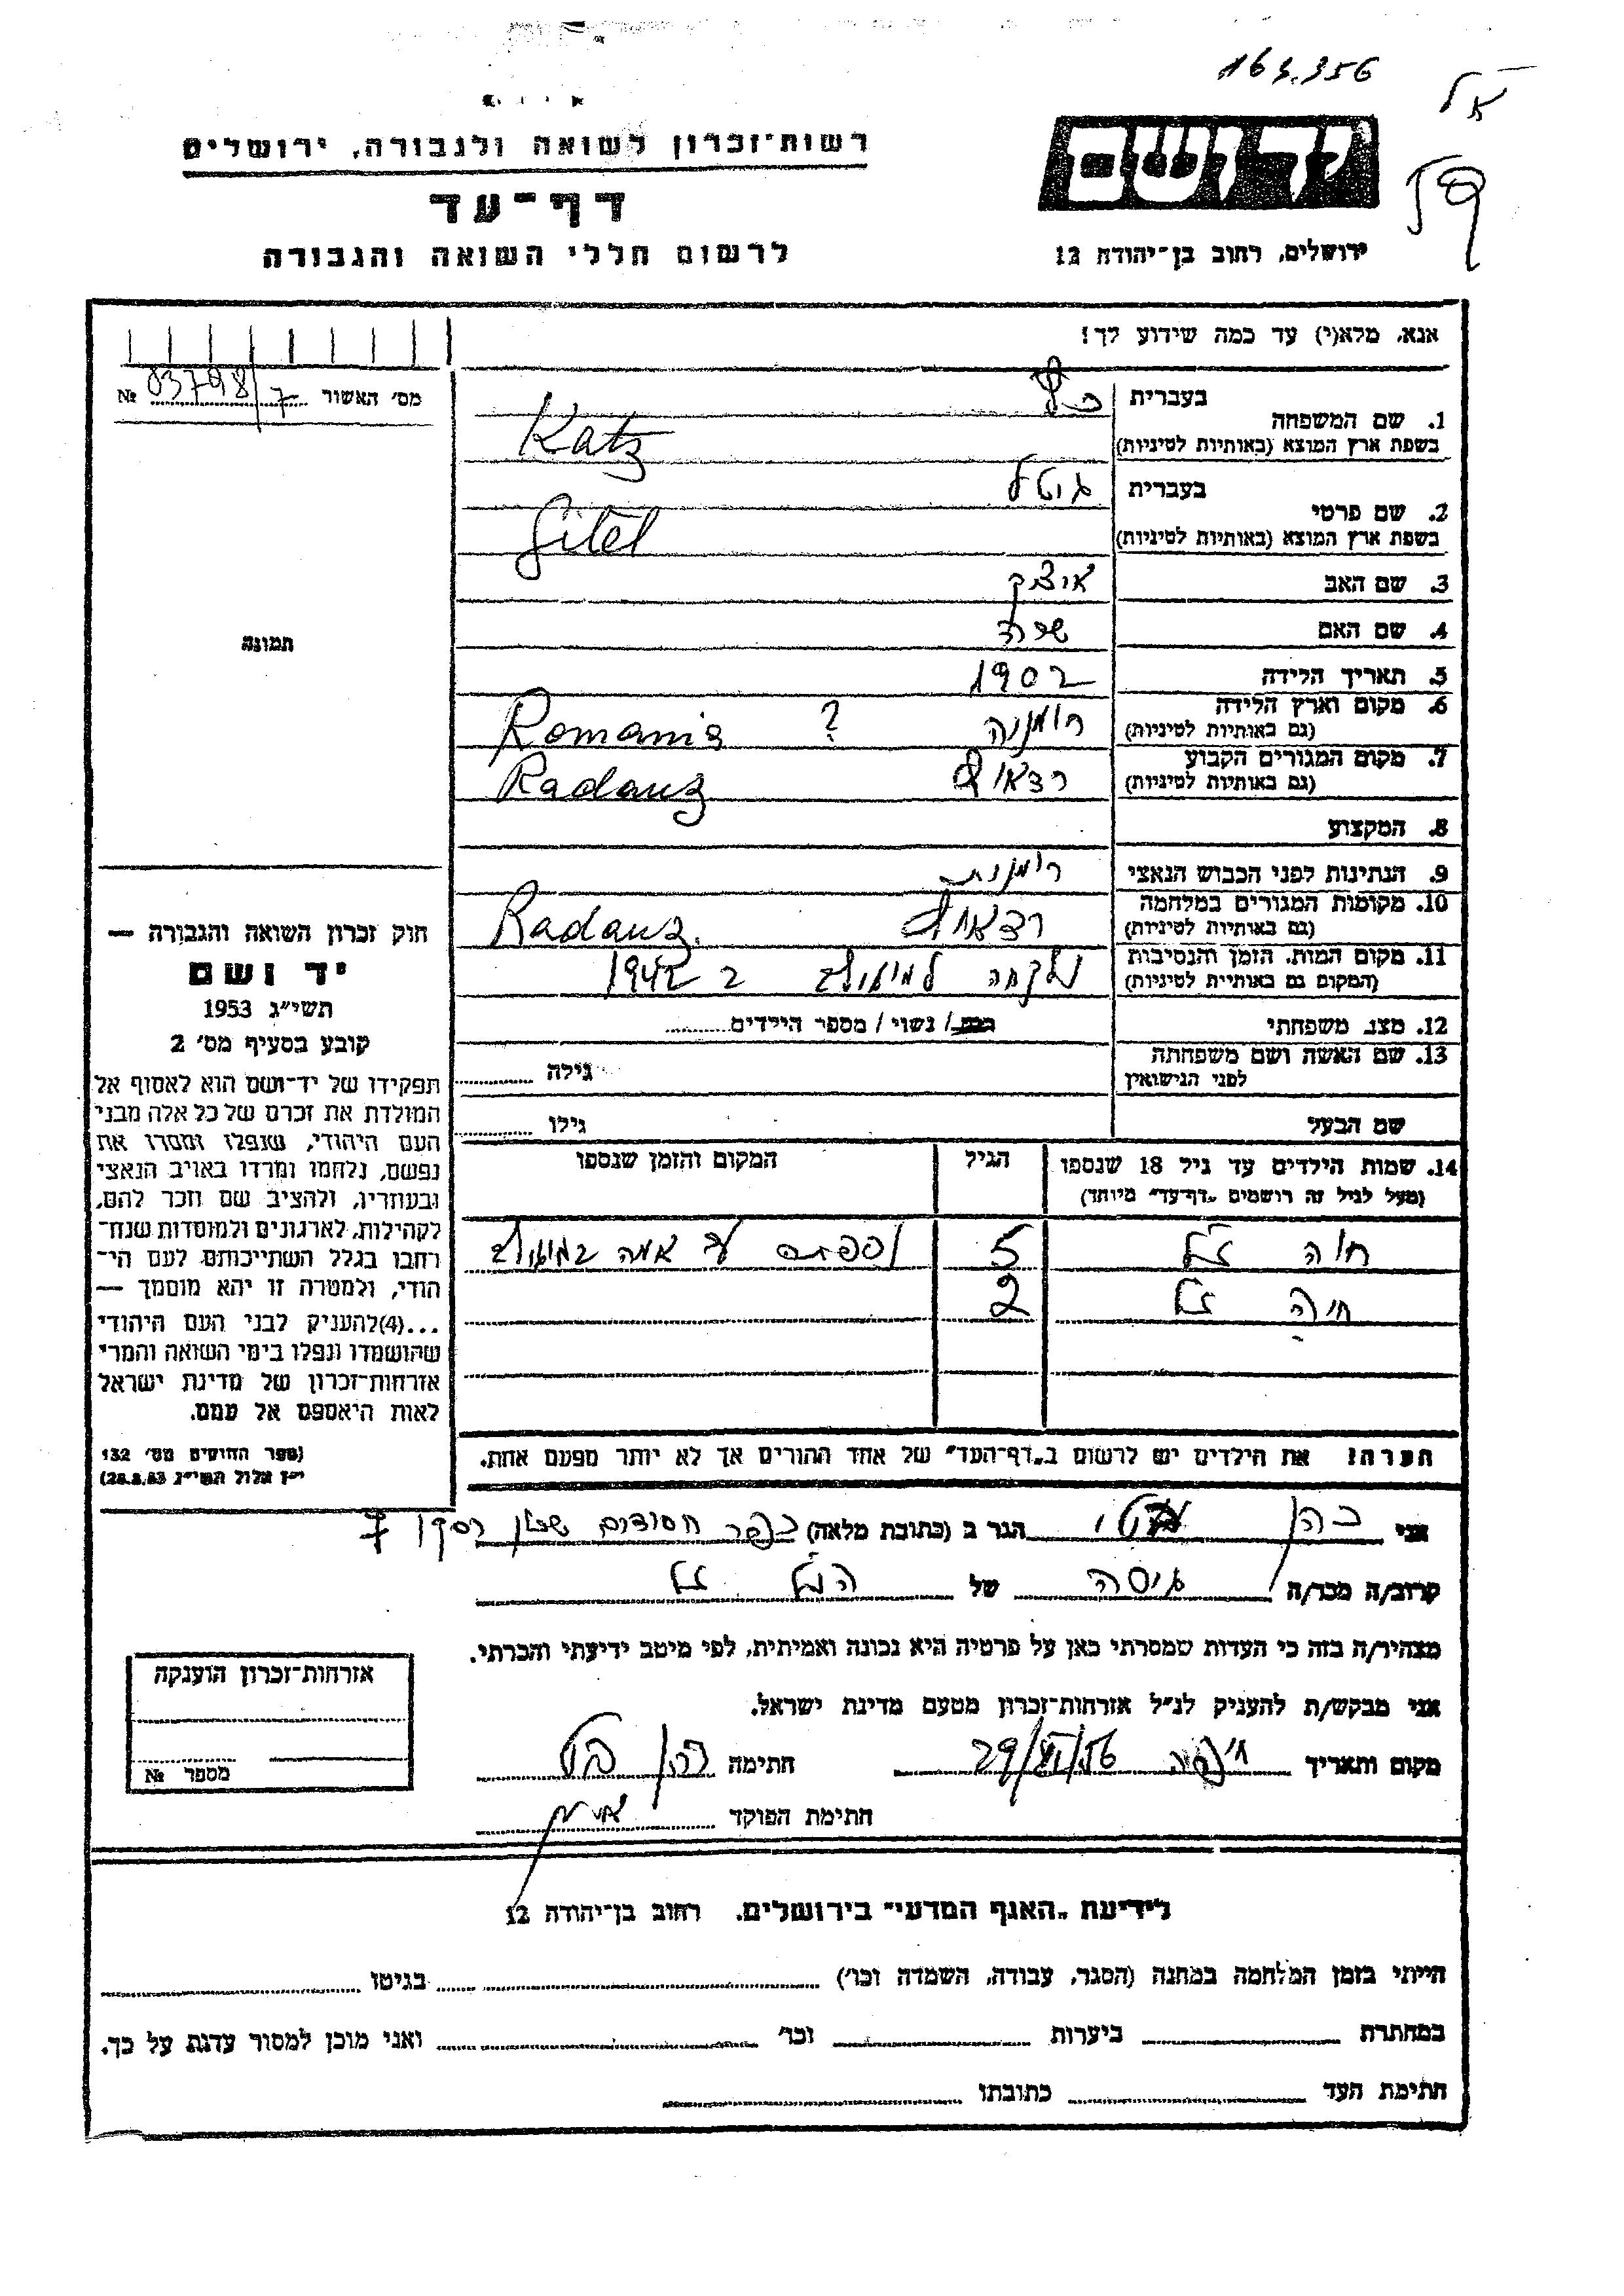 163.356
רשות־זכרון לשואה ולגבורה, ירושלים
יד ושם
דף־עד
לרשום חללי השואה והגבורה
ירושלים, רחוב בן־יהודה 12
אנא, מלא(י) עד כמה שידוע לך!
מס׳ האשור 03798/7 №
1. שם המשפחה
בעברית כץ
בשפת ארץ המוצא (באותיות לטיניות) Katz
2. שם פרטי
בעברית גיטל
בשפת ארץ המוצא (באותיות לטיניות) Gitel
3. שם האב איציק
4. שם האם שרה
5. תאריך הלידה 1902
6. מקום וארץ הלידה רומניה ? Romania
(גם באותיות לטיניות)
7. מקום המגורים הקבוע רדאוץ Radauz
(גם באותיות לטיניות)
8. המקצוע
9. הנתינות לפני הכבוש הנאצי רומנית
10. מקומות המגורים במלחמה רדאוץ Radauz.
(גם באותיות לטיניות)
11. מקום המות, הזמן והנסיבות נלקחה ב 1942
(המקום גם באותיית לטיניות)
12. מצב משפחתי רווק / נשוי / מספר הילדים
13. שם האשה ושם משפחתה
לפני הנישואין גילה
שם הבעל גילו
14. שמות הילדים עד גיל 18 שנספו
(מעל לגיל זה רושמים "דף־עד" מיוחד)
הגיל
המקום והזמן שנספו
חוה ז״ל 5 נספתה עם אמה
חיה ז״ל 2
הערה! את הילדים יש לרשום ב"דף־העד" של אחד ההורים אך לא יותר מפעם אחת.
תמונה
חוק זכרון השואה והגבורה —
יד ושם
תשי״ג 1953
קובע בסעיף מס׳ 2
תפקידו של יד־ושם הוא לאסוף אל
המולדת את זכרם של כל אלה מבני
העם היהודי, שנפלו ומסרו את
נפשם, נלחמו ומרדו באויב הנאצי
ובעוזריו, ולהציב שם וזכר להם,
לקהילות, לארגונים ולמוסדות שנח־
רבו בגלל השתייכותם לעם הי־
הודי, ולמטרה זו יהא מוסמך —
...(4)להעניק לבני העם היהודי
שהושמדו ונפלו בימי השואה והמרי
אזרחות־זכרון של מדינת ישראל
לאות היאספם אל עמם.
(ספר החוקים מס׳ 132
י״ז אלול תשי״ג 28.8.53)
אני כהן הגר ב (כתובת מלאה) כפר חסידים 7
קרוב/ה מכר/ה גיסה של הנ״ל ז״ל
מצהיר/ה בזה כי העדות שמסרתי כאן על פרטיה היא נכונה ואמיתית, לפי מיטב ידיעתי והכרתי.
אני מבקש/ת להעניק לנ״ל אזרחות־זכרון מטעם מדינת ישראל.
מקום ותאריך חיפה 29/VI/56 חתימה כהן
חתימת הפוקד
אזרחות־זכרון הוענקה
מספר №
לידיעת "האגף המדעי" בירושלים. רחוב בן־יהודה 12
הייתי בזמן המלחמה במחנה (הסגר, עבודה, השמדה וכו׳) בגיטו
במחתרת ביערות וכו׳ ואני מוכן למסור עדות על כך.
חתימת העד כתובתו